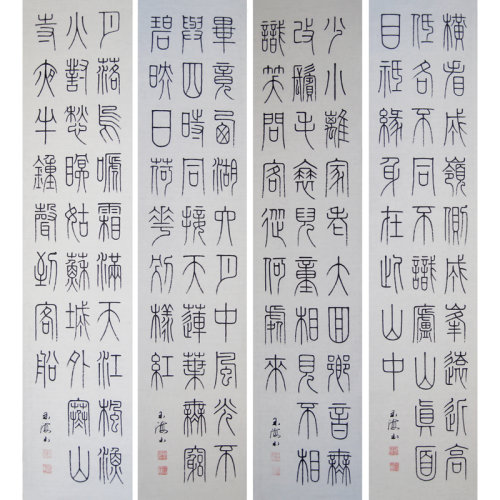 橫看成嶺側成峯遠近高
低各不同不識廬山眞面
目祗緣身在此山中
少小離家老大回鄉音無
改鬢毛衰兒童相見不相
識笑問客從何處來
畢竟西湖六月中風光不
與四時同接天蓮葉無窮
碧映日荷華別樣紅
月落烏嗁霜滿天江楓漁
火對愁眠姑蘇城外寒山
寺夜半鐘聲到客船